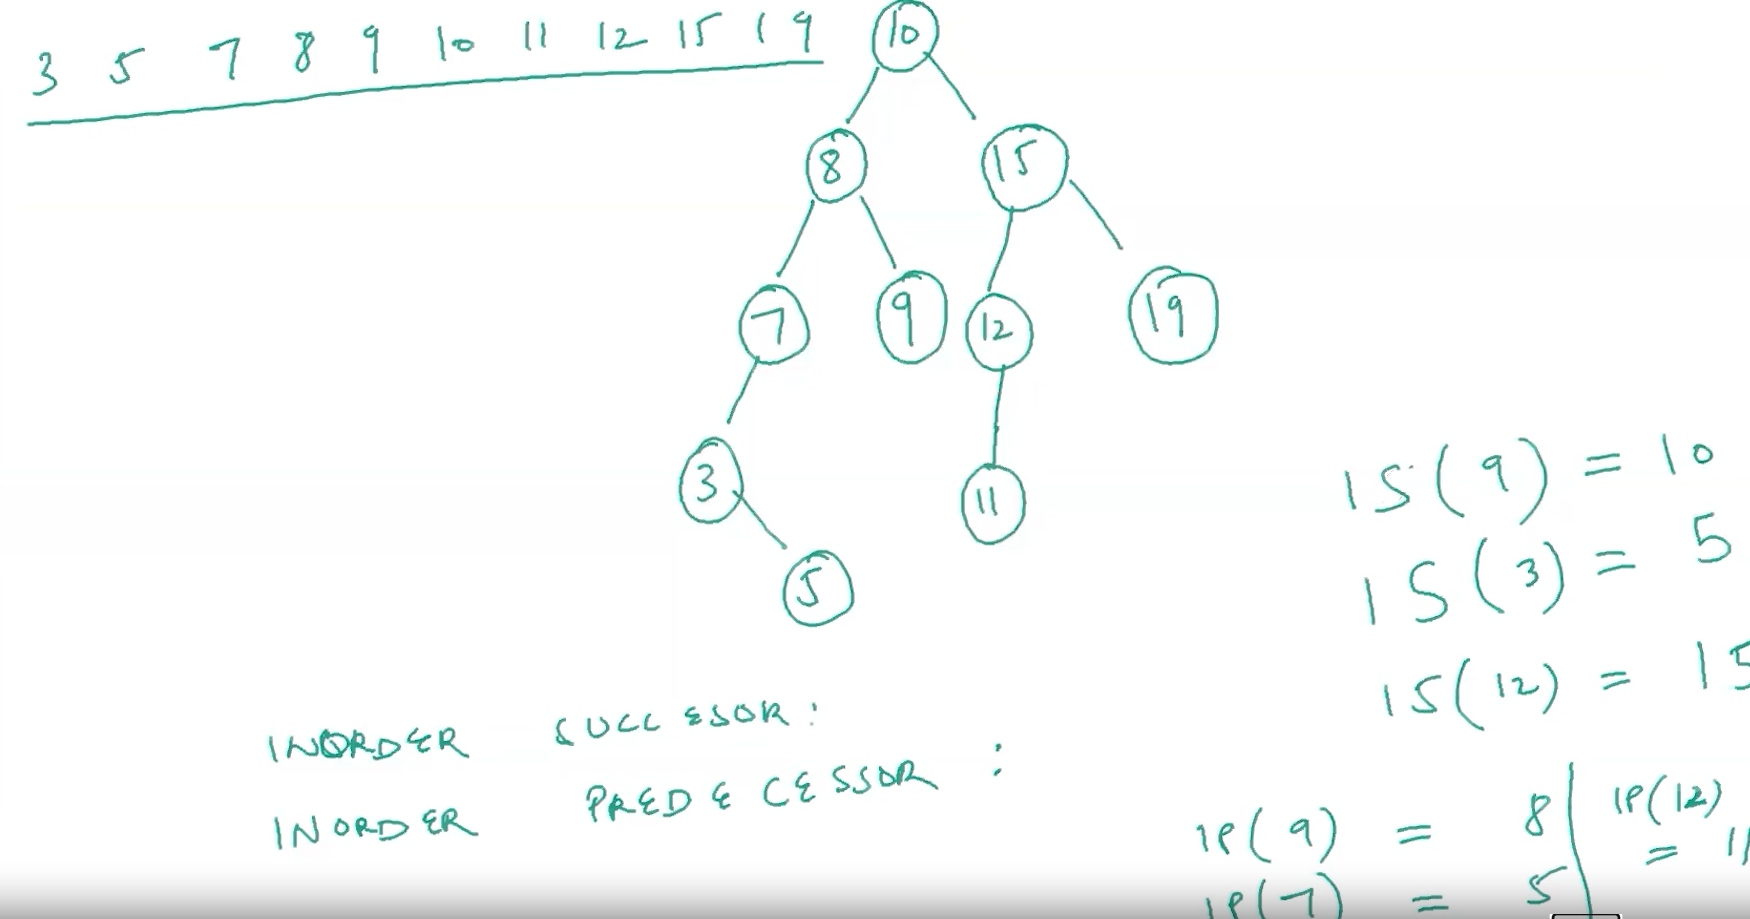 3 5 7 8 9 10 11 12 15 19
10
8 15
7 9 12 19
3 11
5
IS(9) = 10
IS(3) = 5
IS(12) = 15
INORDER SUCCESOR:
INORDER PREDECESSOR:
IP(9) = 8
IP(7) = 5
IP(12)
= 11